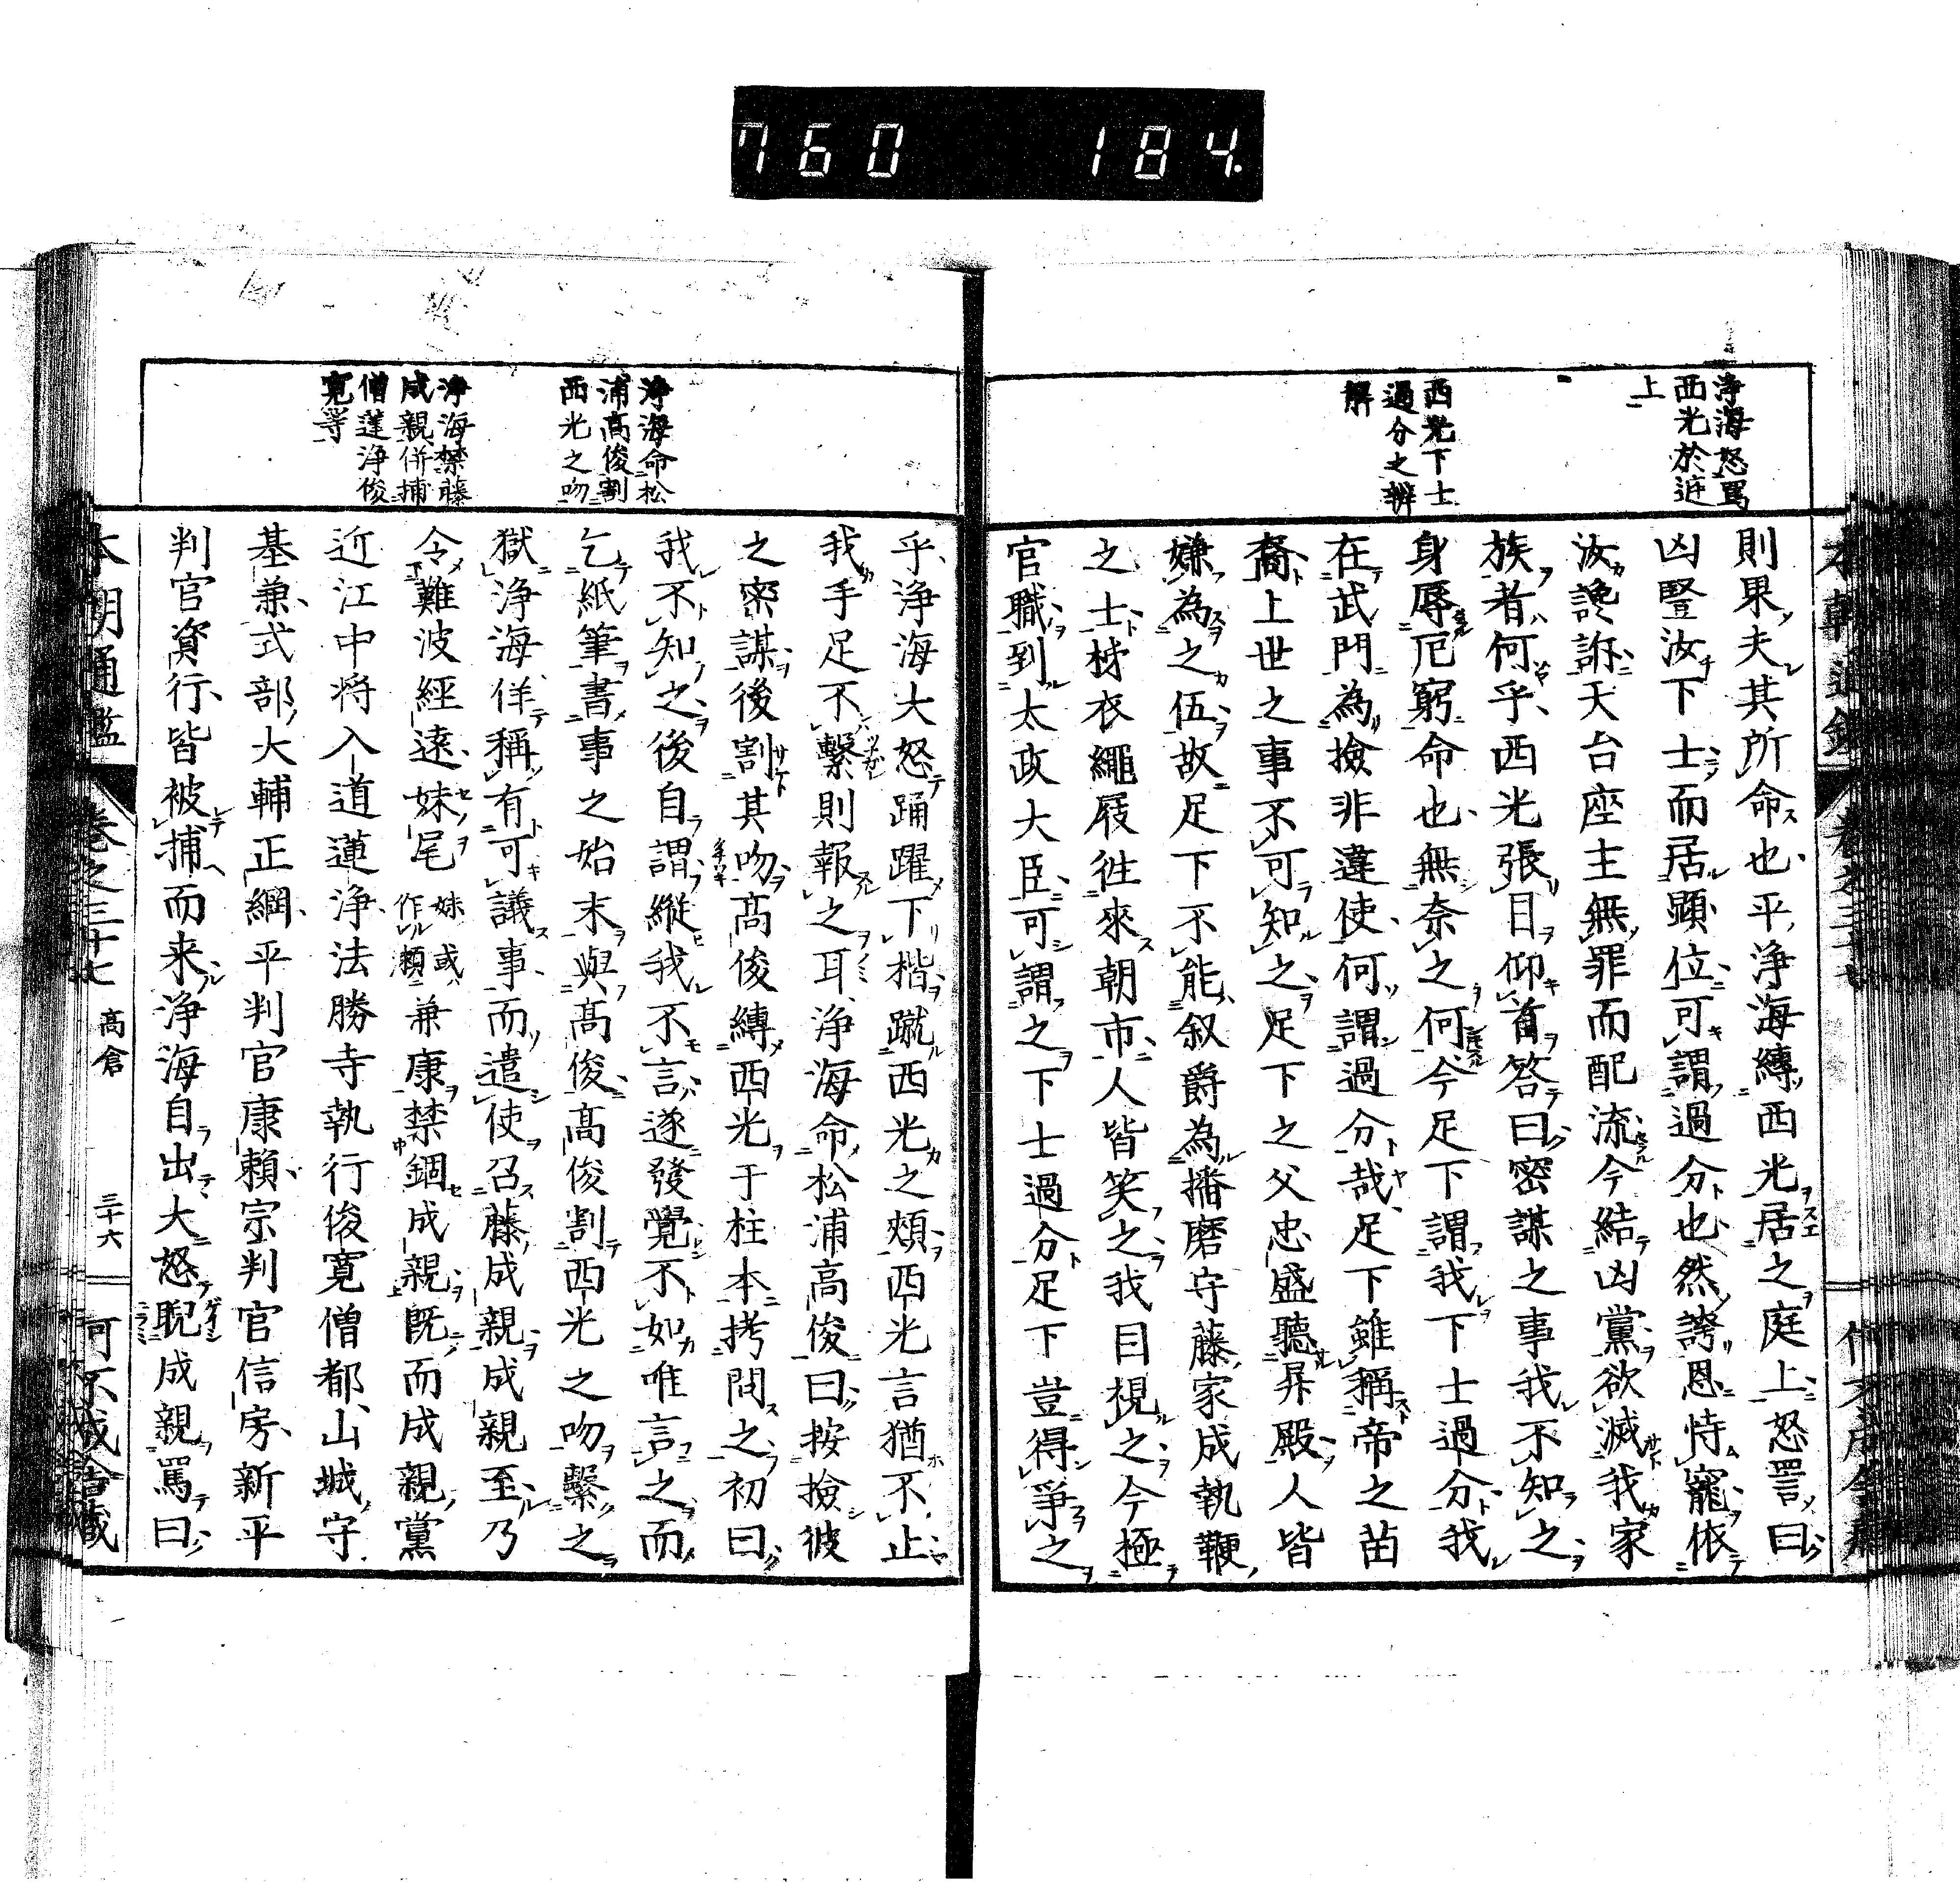 760 184
浄海怒罵
西光於庭
上
西光下士
過分之辨
解
則果夫其所命也平浄海縛西光居之庭上怒詈曰
凶豎汝下士而居顕位可謂過分也然誇恩恃寵依
汝讒訴天台座主無罪而配流今結凶黨欲滅我家
族者何乎西光張目仰首答曰密謀之事我不知之
身辱厄窮命也無奈之何今足下謂我下士過分我
在武門為撿非違使何謂過分哉足下雖稱帝之苗
裔上世之事不可知之足下之父忠盛聽昇殿人皆
嫌為之伍故足下不能叙爵為播磨守藤家成執鞭
之士枺衣繩屐徃來朝市人皆笑之我目視之今極
官職到太政大臣可謂之下士過分足下豈得爭之
浄海命松
浦高俊割
西光之吻
浄海禁藤
成親併捕
僧蓮浄俊
寛等
乎浄海大怒踊躍下楷蹴西光之頰西光言猶不止
我手足不繫則報之耳浄海命松浦高俊曰按撿彼
之密謀後割其吻高俊縛西光于柱本拷問之初曰
我不知之後自謂縱我不言遂發覺不如唯言之而
乞紙筆書事之始末與高俊高俊割西光之吻繫之
獄浄海佯稱有可議事而遣使召藤成親成親至乃
令難波經遠妹尾妹或作瀬兼康禁錮成親既而成親黨
近江中将入道蓮浄法勝寺執行俊寛僧都山城守
基兼式部大輔正綱平判官康賴宗判官信房新平
判官資行皆被捕而来浄海自出大怒睨成親罵曰
本朝通鑑 卷之三十七 高倉 三十六